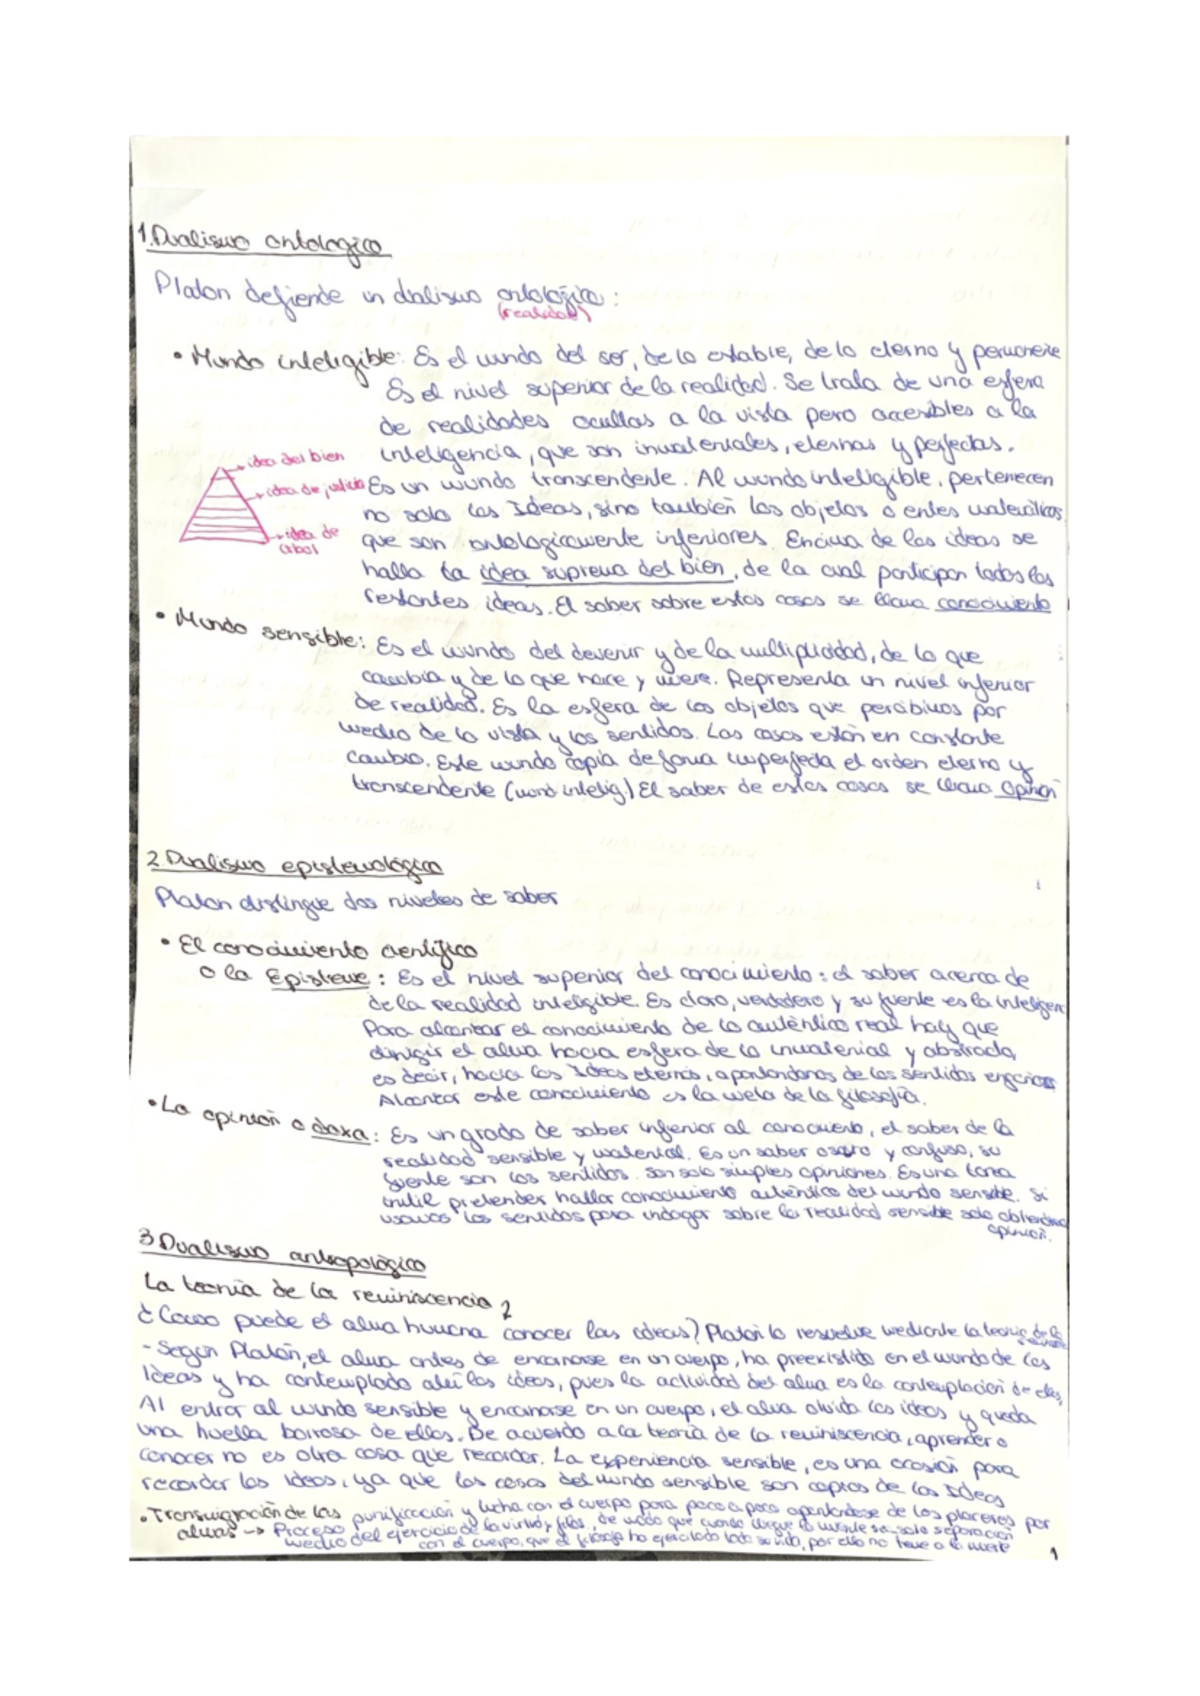 1. Dualismo ontologico
Platon defiende un dualismo ontológico:
(realidad)
• Mundo inteligible: Es el mundo del ser, de lo estable, de lo eterno y permanente
Es el nivel superior de la realidad. Se trata de una esfera
de realidades ocultas a la vista pero accesibles a la
inteligencia, que son inmateriales, eternas y perfectas.
idea del bien
idea de justicia
idea de
arbol
Es un mundo transcendente. Al mundo inteligible, pertenecen
no solo las Ideas, sino también los objetos o entes matemáticos
que son ontologicamente inferiores. Encima de las ideas se
halla la idea suprema del bien, de la cual participan todas las
restantes ideas. El saber sobre estas cosas se llama conocimiento
• Mundo sensible: Es el mundo del devenir y de la multiplicidad, de lo que
cambia y de lo que nace y muere. Representa un nivel inferior
de realidad. Es la esfera de los objetos que percibimos por
medio de la vista y los sentidos. Las cosas están en constante
cambio. Este mundo copia de forma imperfecta el orden eterno y
transcendente (mund intelig) El saber de estas cosas se llama Opinión
2. Dualismo epistemológico
Platon distingue dos niveles de saber
• El conocimiento científico
o la Episteme: Es el nivel superior del conocimiento: el saber acerca de
de la realidad inteligible. Es claro, verdadero y su fuente es la inteligen
Para alcanzar el conocimiento de lo auténtico real hay que
dirigir el alma hacia esfera de lo inmaterial y abstracto,
es decir, hacia las Ideas eternas, apartándonos de los sentidos
Alcanzar este conocimiento es la meta de la filosofía.
• La opinión o doxa: Es un grado de saber inferior al conocimiento, el saber de la
realidad sensible y material. Es un saber oscuro y confuso, su
fuente son los sentidos. Son solo simples opiniones. Es una tarea
inútil pretender hallar conocimiento auténtico del mundo sensible. Si
usamos los sentidos para indagar sobre la realidad sensible solo
opinión.
3 Dualismo antropológico
La teoría de la reminiscencia
¿Como puede el alma humana conocer las ideas? Platón lo resuelve mediante la teoría de la
- Según Platón, el alma antes de encarnarse en un cuerpo, ha preexistido en el mundo de las
Ideas y ha contemplado allí las ideas, pues la actividad del alma es la contemplación de ellas,
Al entrar al mundo sensible y encarnarse en un cuerpo, el alma olvida las ideas y queda
una huella borrosa de ellas. De acuerdo a la teoría de la reminiscencia, aprender o
conocer no es otra cosa que recordar. La experiencia sensible, es una ocasión para
recordar las Ideas, ya que las cosas del mundo sensible son copias de las Ideas
• Transmigración de las purificación y lucha con el cuerpo para poco a poco apartándose de los placeres por
almas → Proceso del ejercicio de la virtud y filos, de modo que cuando llegue la muerte sea solo separación
medio con el cuerpo, que el filósofo ha ejercitado toda su vida, por ello no teme a la muerte
1